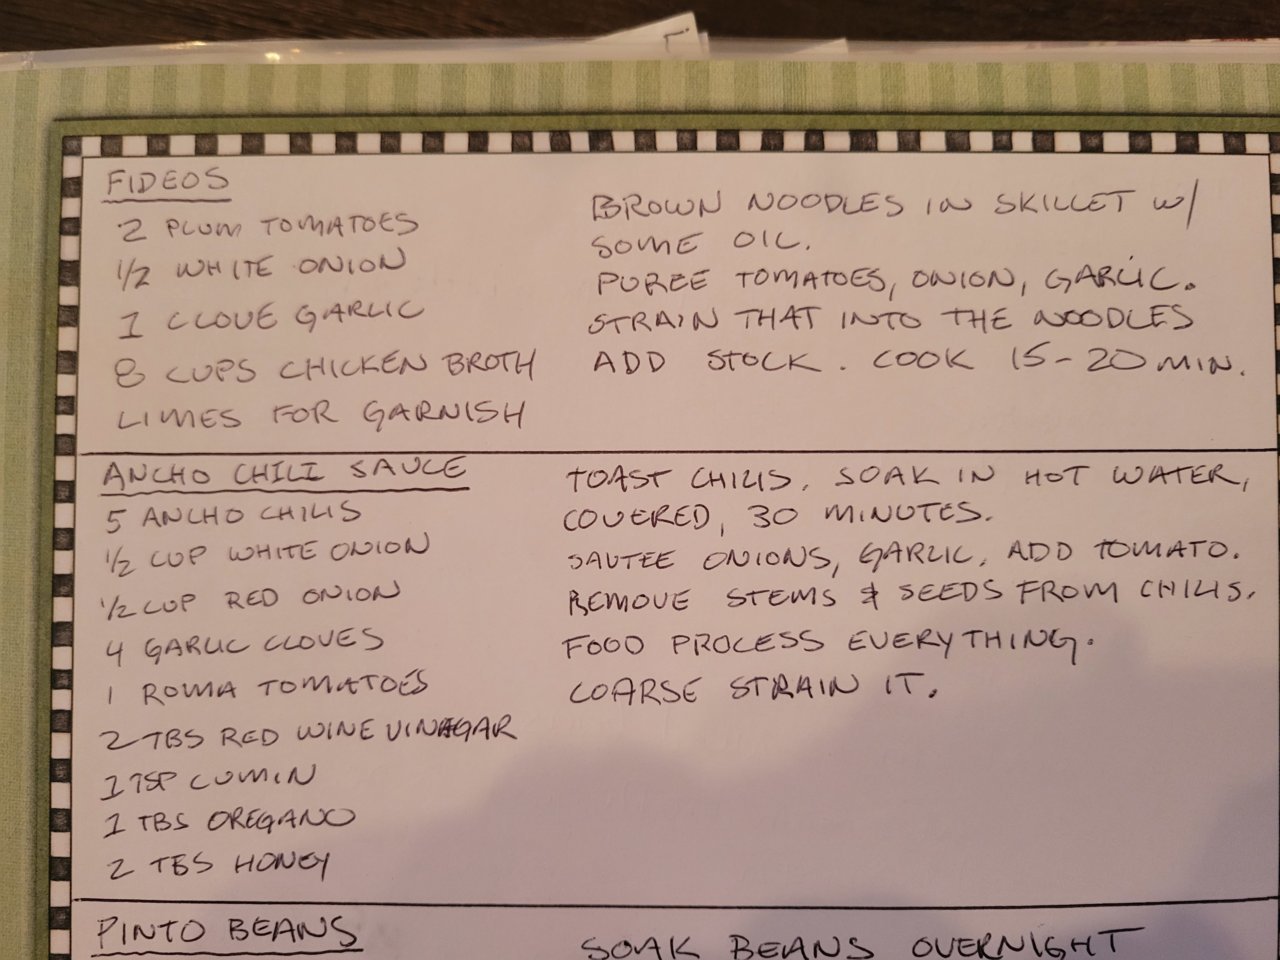 FIDEOS
2 PLUM TOMATOES
1/2 WHITE ONION
1 CLOVE GARLIC
8 CUPS CHICKEN BROTH
LIMES FOR GARNISH
BROWN NOODLES IN SKILLET W/
SOME OIL.
PUREE TOMATOES, ONION, GARLIC.
STRAIN THAT INTO THE NOODLES
ADD STOCK. COOK 15-20 MIN.
ANCHO CHILI SAUCE
5 ANCHO CHILIS
1/2 CUP WHITE ONION
1/2 CUP RED ONION
4 GARLIC CLOVES
1 ROMA TOMATOES
2 TBS RED WINE VINAGAR
1 TSP CUMIN
1 TBS OREGANO
2 TBS HONEY
TOAST CHILIS. SOAK IN HOT WATER,
COVERED, 30 MINUTES.
SAUTEE ONIONS, GARLIC. ADD TOMATO.
REMOVE STEMS & SEEDS FROM CHILIS.
FOOD PROCESS EVERYTHING.
COARSE STRAIN IT.
PINTO BEANS
SOAK BEANS OVERNIGHT